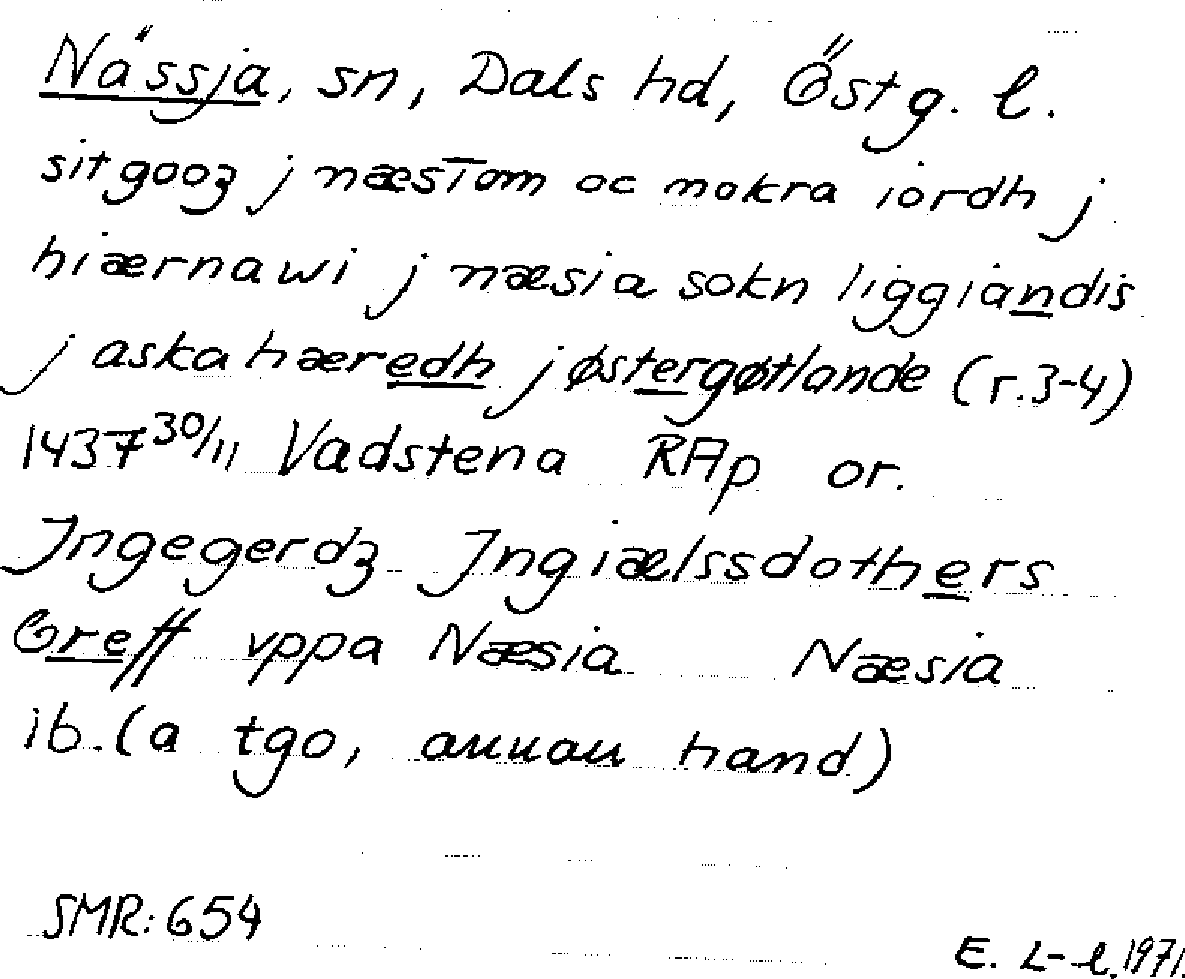 Nässja, sn, Dals hd, Östg. l.
sitgooʒ j næstom oc mokra iordh j
hiærnawi j næsia sokn liggiandis
j aska hæredh j østergøtlande (r.3-4)
1437 30/11 Vadstena RAp or.
Jngegerdʒ Jngiælssdothers
Breff vppa Næsia Næsia
ib. (a tgo, annan hand)
SMR: 654
E. L-l. 1971.